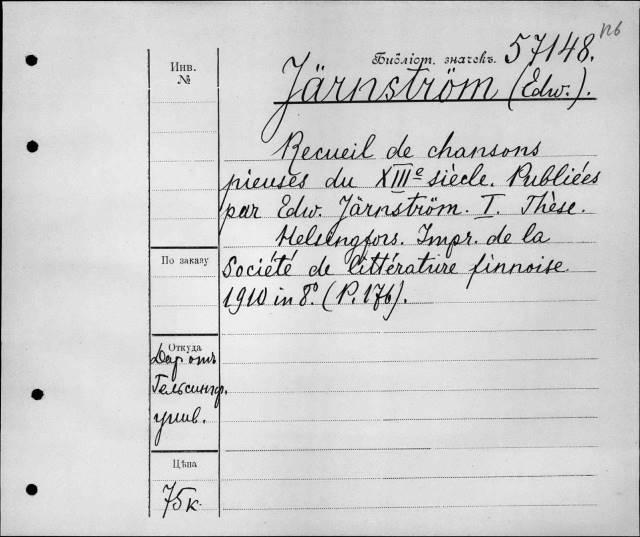 пб
Библіот. значекъ. 57148.
Инв.
№
Järnström (Edw.).
Recueil de chansons
pieuses du XIIIe siècle. Publiées
par Edw. Järnström. I. Thèse.
Helsingfors. Impr. de la
Société de littérature finnoise
1910 in 8º. (P. 176).
По заказу
Откуда
Дар отъ
Гельсингф.
унив.
Цѣна
75к.